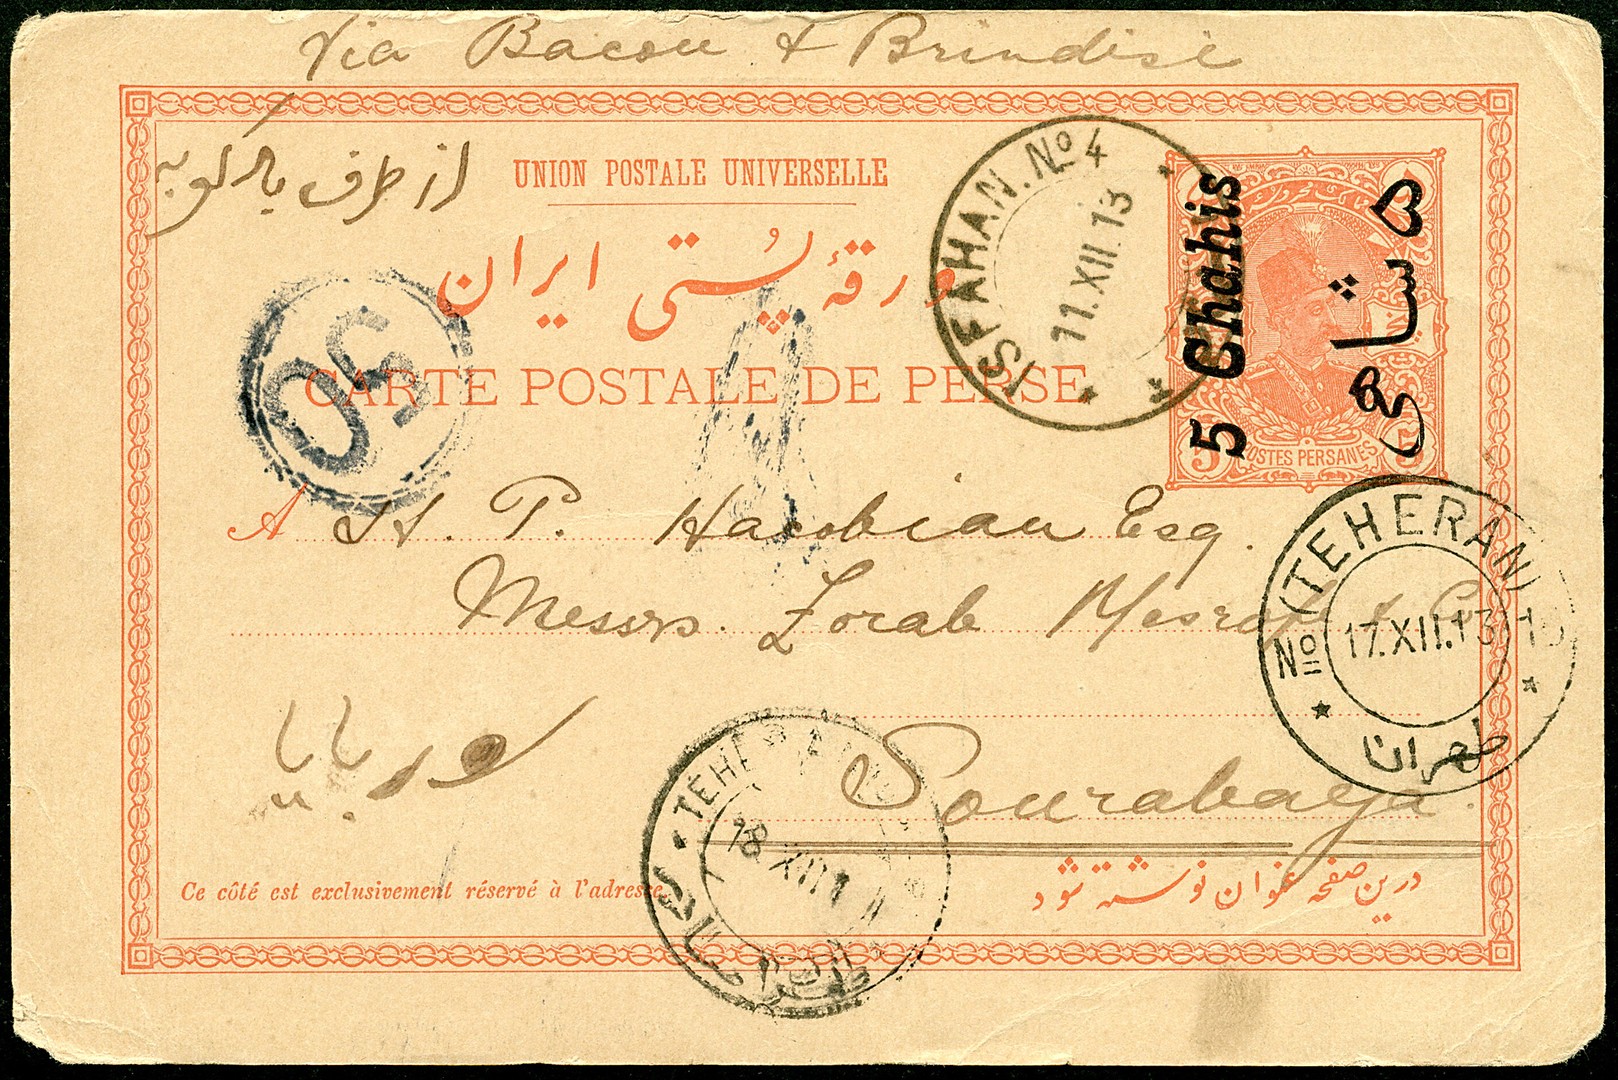 Via Bacou & Brindisi
از طرف بادکوبه
UNION POSTALE UNIVERSELLE
ورقهٔ پُستی ایران
CARTE POSTALE DE PERSE
ISFAHAN. No 4
11.XII.13
5 Chahis
۵ شاهی
5 5
POSTES PERSANES
50
A H. P. Hacobian Esq.
Messrs. Zorab Mesrop & Co
No (TEHERAN)
17.XII.13
طهران
سوربایا
Sourabaya.
TEHERAN
18 XII 1
طهران
Ce côté est exclusivement réservé à l'adresse
درین صفحه عنوان نوشته شود